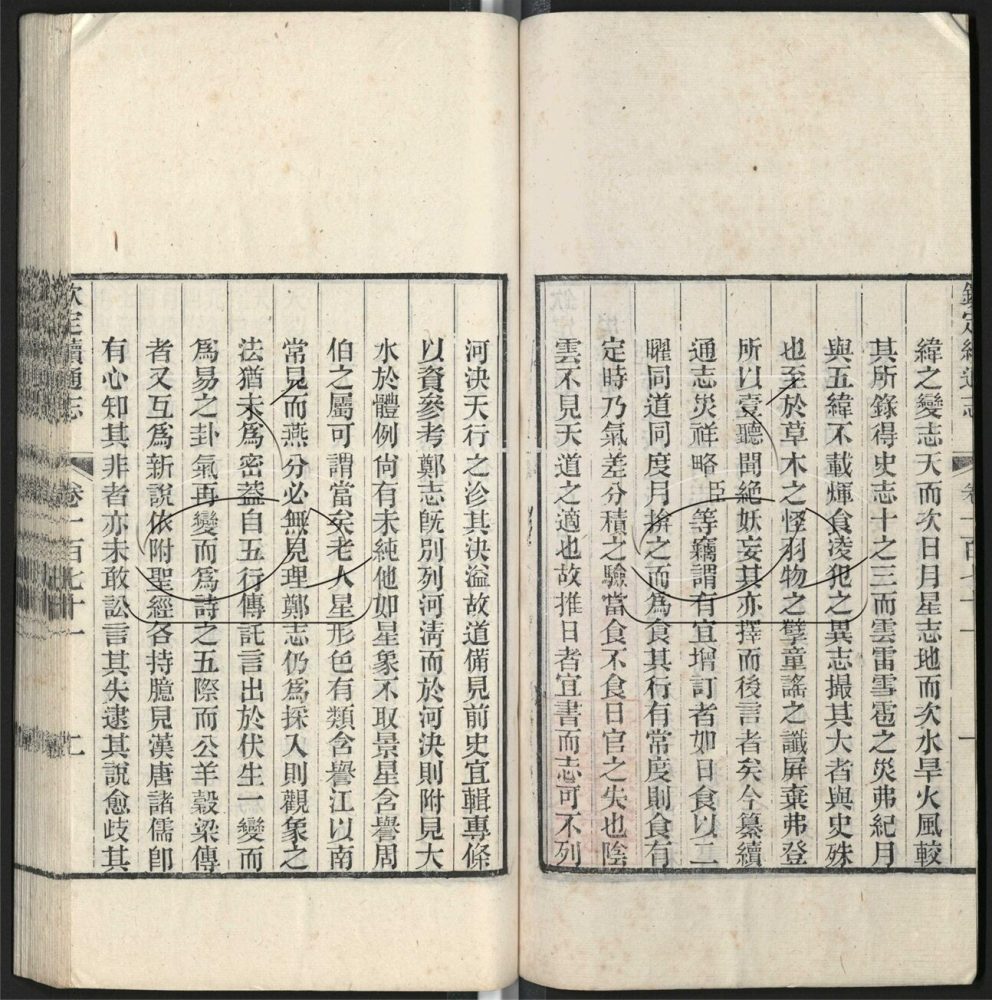 緯之變志天而次日月星志地而次水旱火風較
其所錄得史志十之三而雲雷雪雹之災弗紀月
與五緯不載煇食淩犯之異志撮其大者與史殊
也至於草木之怪羽物之孽童謠之讖屏棄弗登
所以壹聽聞絕妖妄其亦擇而後言者矣今纂續
通志災祥略臣等竊謂有宜增訂者如日食以二
曜同道同度月揜之而爲食其行有常度則食有
定時乃氣差分積之驗當食不食日官之失也陰
雲不見天道之適也故推日者宜書而志可不列
河決天行之沴其決溢故道備見前史宜輯專條
以資參考鄭志旣別列河淸而於河決則附見大
水於體例尙有未純他如星象不取景星含譽周
伯之屬可謂當矣老人星形色有類含譽江以南
常見而燕分必無見理鄭志仍爲採入則觀象之
法猶未爲密蓋自五行傳託言出於伏生一變而
爲易之卦氣再變而爲詩之五際而公羊穀梁傳
者又互爲新說依附聖經各持臆見漢唐諸儒卽
有心知其非者亦未敢訟言其失逮其說愈歧其
欽定續通志 卷一百七十一 二